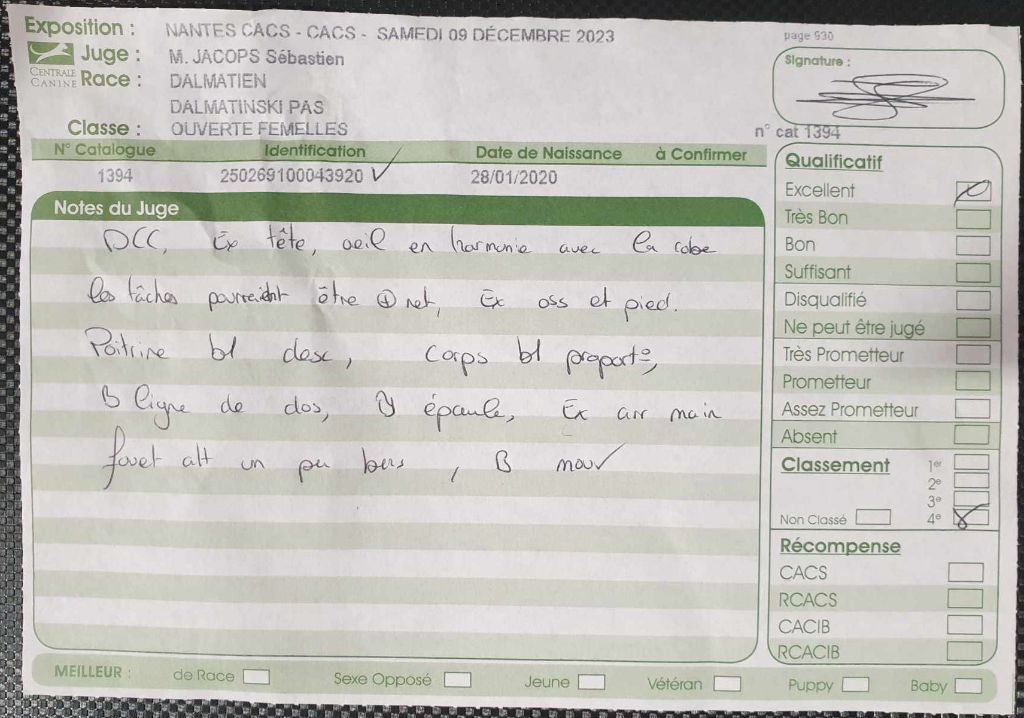 Exposition : NANTES CACS - CACS - SAMEDI 09 DÉCEMBRE 2023
page 930
Juge : M. JACOPS Sébastien
CENTRALE CANINE
Race : DALMATIEN
DALMATINSKI PAS
Classe : OUVERTE FEMELLES
Signature :
n° cat 1394
N° Catalogue Identification Date de Naissance à Confirmer
1394 250269100043920 28/01/2020
Notes du Juge
DCC, Ex tête, oeil en harmonie avec la robe
les tâches pourraient être + net, Ex oss et pied.
Poitrine bl desc, corps bl proport°,
B ligne de dos, B épaule, Ex arr main
fouet att un peu bas, B mouv
Qualificatif
Excellent
Très Bon
Bon
Suffisant
Disqualifié
Ne peut être jugé
Très Prometteur
Prometteur
Assez Prometteur
Absent
Classement 1er
2e
3e
Non Classé 4e
Récompense
CACS
RCACS
CACIB
RCACIB
MEILLEUR : de Race Sexe Opposé Jeune Vétéran Puppy Baby